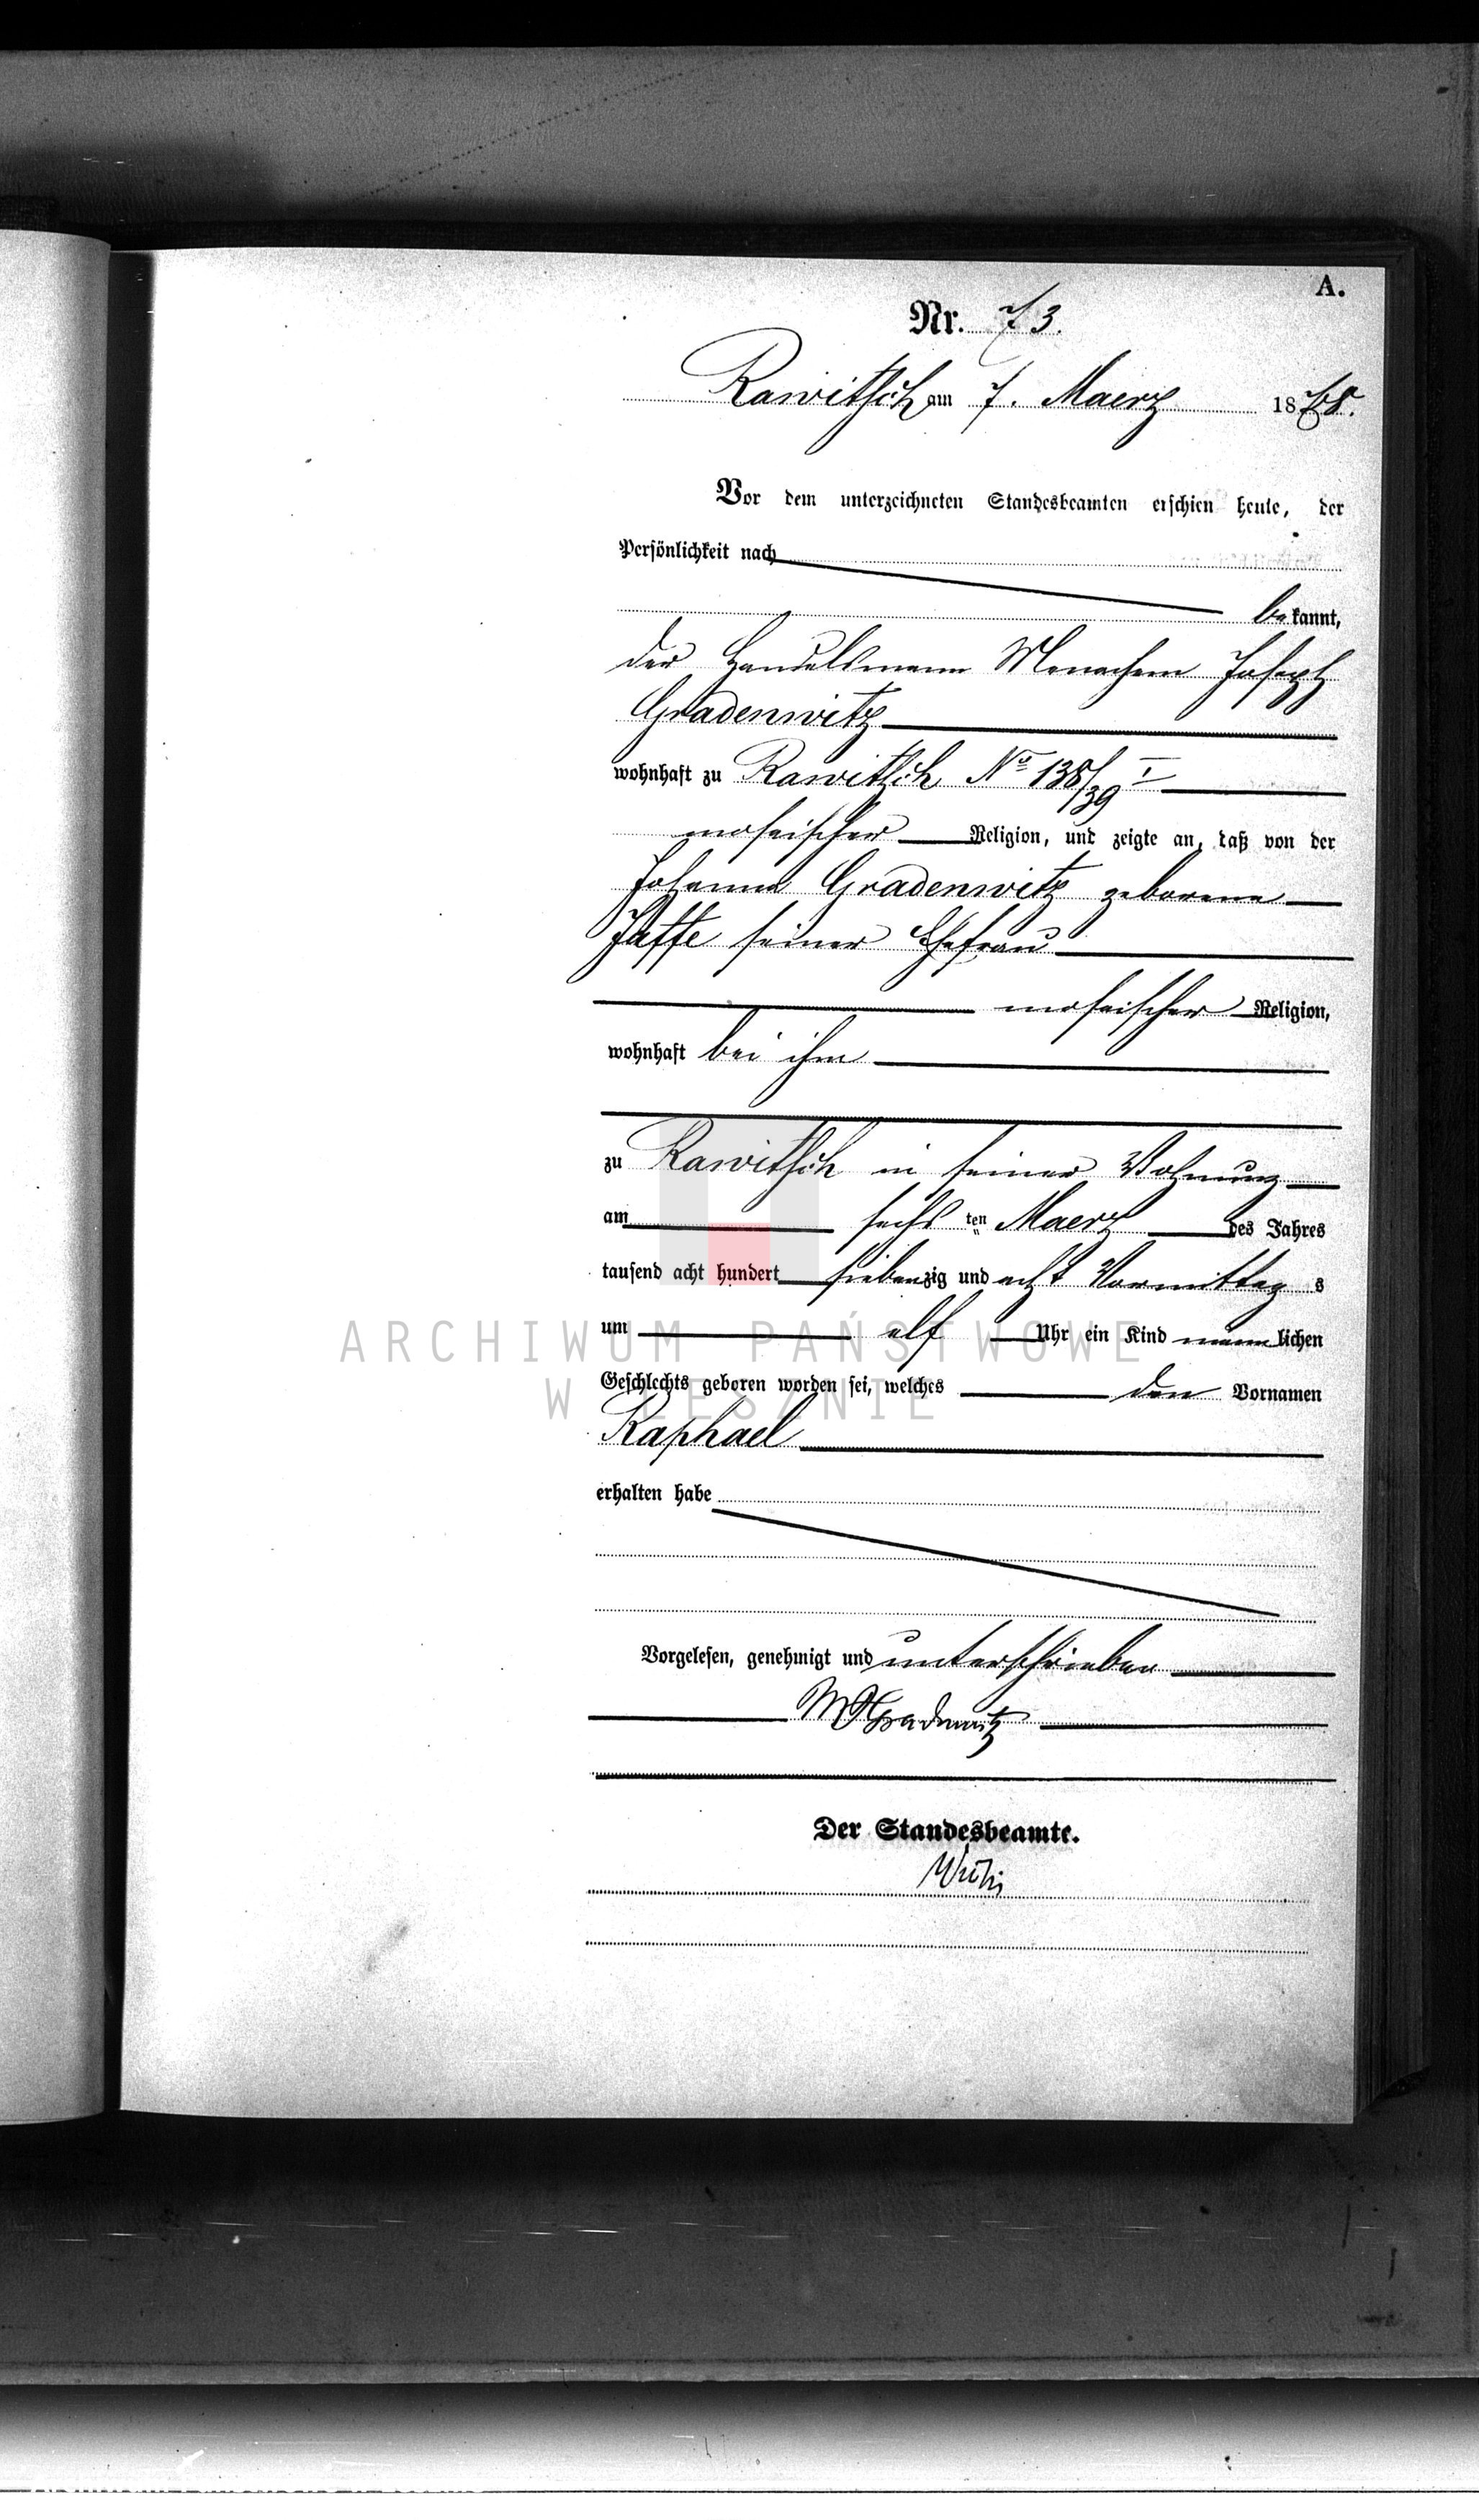 A.
Nr. 73.
Rawitsch am 7. Maerz 1878.
Vor dem unterzeichneten Standesbeamten erschien heute, der
Persönlichkeit nach
bekannt,
der Handelsmann Menachem Joseph
Gradenwitz
wohnhaft zu Rawitsch No 138/39 I
mosaischer Religion, und zeigte an, daß von der
Johanna Gradenwitz geborene
Jaffe seiner Ehefrau
mosaischer Religion,
wohnhaft bei ihm
zu Rawitsch in seiner Wohnung
am sechs ten Maerz des Jahres
tausend acht hundert siebenzig und acht Vormittag s
um elf Uhr ein Kind männlichen
ARCHIWUM PAŃSTWOWE
Geschlechts geboren worden sei, welches den Vornamen
W LESZNIE
Raphael
erhalten habe
Vorgelesen, genehmigt und unterschrieben
M J Gradenwitz
Der Standesbeamte.